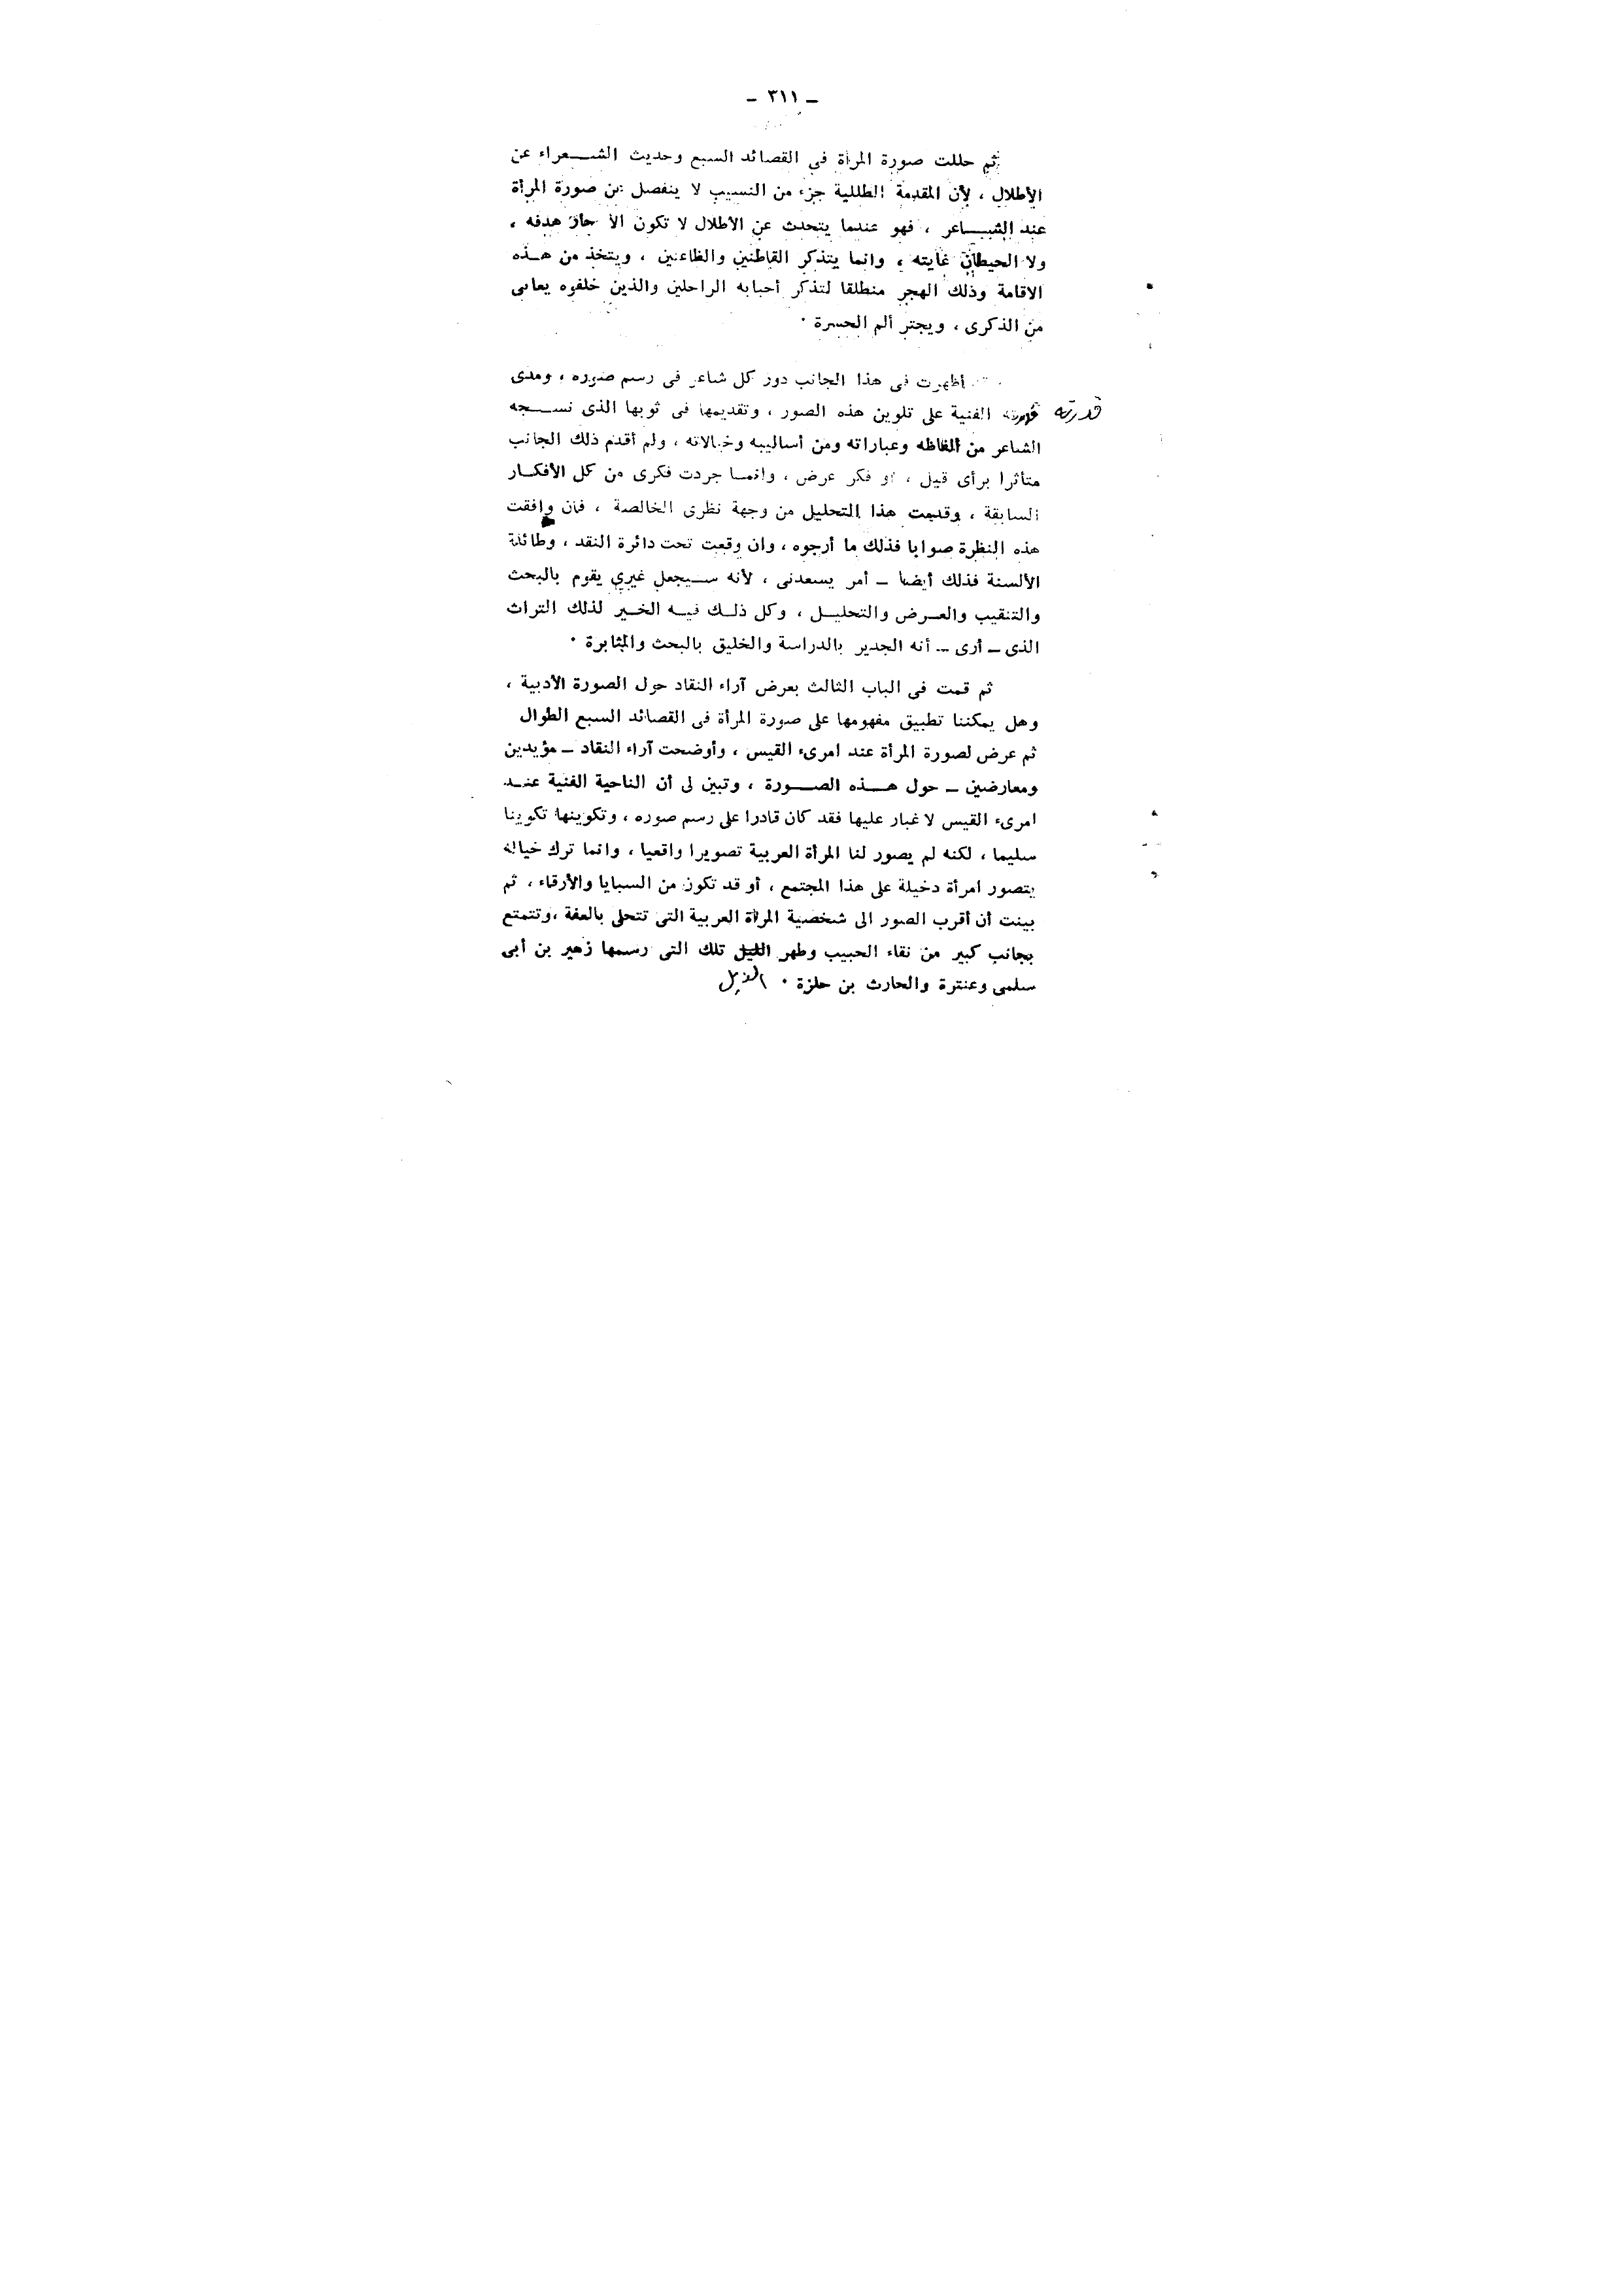 ـ ٣١١ ـ
ثم حللت صورة المرأة فى القصائد السبع وحديث الشـــعراء عن
الأطلال ، لأن المقدمة الطللية جزء من النسيب لا ينفصل عن صورة المرأة
عند الشـــاعر ، فهو عندما يتحدث عن الأطلال لا تكون الأحجار هدفه ،
ولا الحيطان غايته ، وانما يتذكر القاطنين والظاعنين ، ويتخذ من هــذه
الاقامة وذلك الهجر منطلقا لتذكر أحبابه الراحلين والذين خلفوه يعانى
من الذكرى ، ويجتر ألم الحسرة ٠
أظهرت فى هذا الجانب دور كل شاعر فى رسم صوره ، ومدى
قدرته الفنية على تلوين هذه الصور ، وتقديمها فى ثوبها الذى نســـجه
الشاعر من ألفاظه وعباراته ومن أساليبه وخيالاته ، ولم أقدم ذلك الجانب
متأثرا برأى قيل ، أو فكر عرض ، وانمــا جردت فكرى من كل الأفكــار
السابقة ، وقدمت هذا التحليل من وجهة نظرى الخالصة ، فان وافقت
هذه النظرة صوابا فذلك ما أرجوه ، وان وقعت تحت دائرة النقد ، وطائلة
الألسنة فذلك أيضا ـ أمر يسعدنى ، لأنه ســيجعل غيرى يقوم بالبحث
والتنقيب والعــرض والتحليــل ، وكل ذلــك فيــه الخــير لذلك التراث
الذى ـ أرى ـ أنه الجدير بالدراسة والخليق بالبحث والمثابرة ٠
ثم قمت فى الباب الثالث بعرض آراء النقاد حول الصورة الأدبية ،
وهل يمكننا تطبيق مفهومها على صورة المرأة فى القصائد السبع الطوال
ثم عرض لصورة المرأة عند امرىء القيس ، وأوضحت آراء النقاد ـ مؤيدين
ومعارضين ـ حول هـــذه الصـــورة ، وتبين لى أن الناحية الفنية عنــد
امرىء القيس لا غبار عليها فقد كان قادرا على رسم صوره ، وتكوينها تكوينا
سليما ، لكنه لم يصور لنا المرأة العربية تصويرا واقعيا ، وانما ترك خياله
يتصور امرأة دخيلة على هذا المجتمع ، أو قد تكون من السبايا والأرقاء ، ثم
بينت أن أقرب الصور الى شخصية المرأة العربية التى تتحلى بالعفة ،وتتمتع
بجانب كبير من نقاء الحبيب وطهر الليل تلك التى رسمها زهير بن أبى
سلمى وعنترة والحارث بن حلزة ٠ الذيل